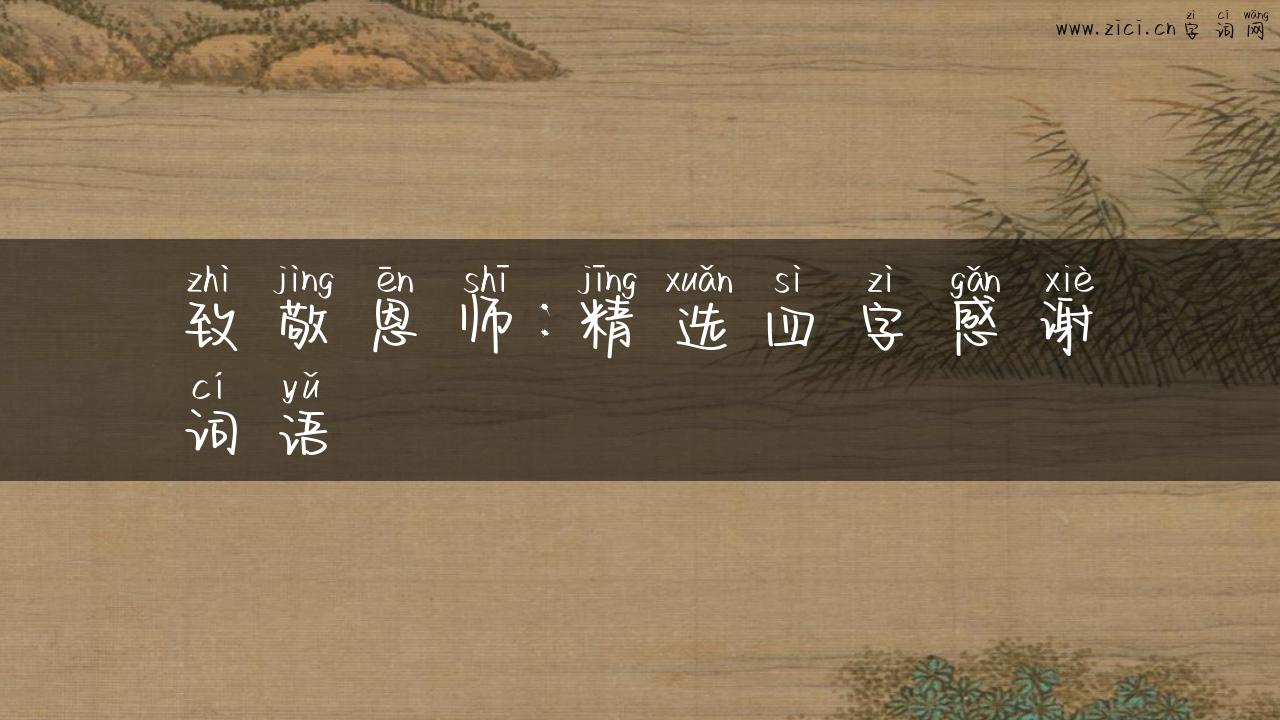 zì cí wǎng
www.zici.cn字词网
zhì jìng ēn shī jīng xuǎn sì zì gǎn xiè
致敬恩师：精选四字感谢
cí yǔ
词语